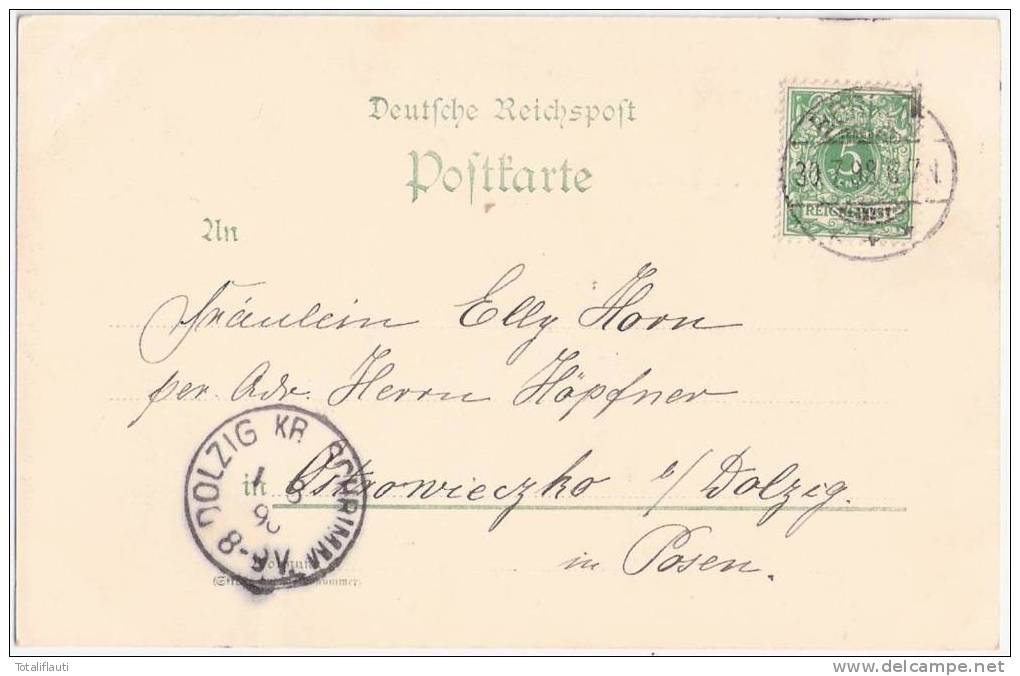 Deutsche Reichspost
Postkarte
An
5
REICHSPOST
30 7 98 6-7 N.
Fräulein Elly Horn
per Adr. Herrn Höpfner
in Ostrowieczko b/ Dolzig.
in Posen.
DOLZIG KR SCHRIMM
Wohnung
(Straße und Hausnummer)
Totaliflauti
www.delcampe.net